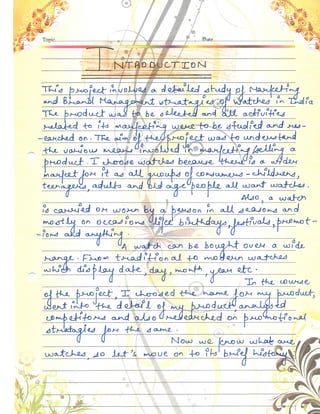 Topic Date
INTRODUCTION
This project involves a detailed study of Marketing
and Brand Management strategies of Watches in India
The product was to be selected and all activities
related to its marketing were to be studied and res-
earched on. The aim of the project was to understand
the various means involved in marketing/selling a
product. I choose watches because there is a wider
market for it as all groups of consumers - childrens,
teenagers, adults and old age people all want watches.
Also, a watch
is carried or worn by a person in all seasons and
mostly on occasions like birthdays, festivals, promot-
ions and anything.
A watch can be bought over a wide
range. From traditional to modern watches
which display date, day, month, year etc.
In the course
of the project, I choosed the name for my product,
went into the detail of my product analysed
competitors and also researched on promotional
strategies for the same.
Now we know what are
watches so let's move on to its brief history